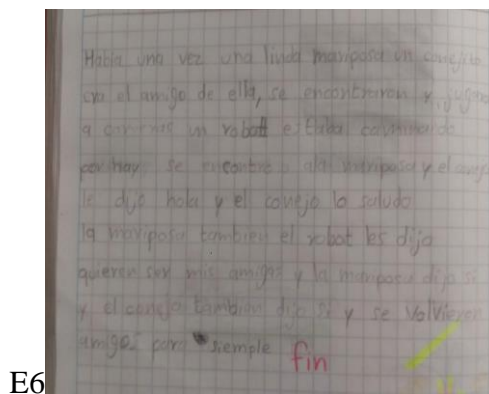 Había una vez una linda mariposa un conejito
era el amigo de ella, se encontraron y jugaron
a carreras un robot estaba caminando
por hay se encontro ala mariposa y el amigo
le dijo hola y el conejo lo saludo
la mariposa tambien el robot les dijo
quieren ser mis amigos y la mariposa dijo si
y el conejo tambien dijo si y se volvieron
amigos para siemple fin
E6